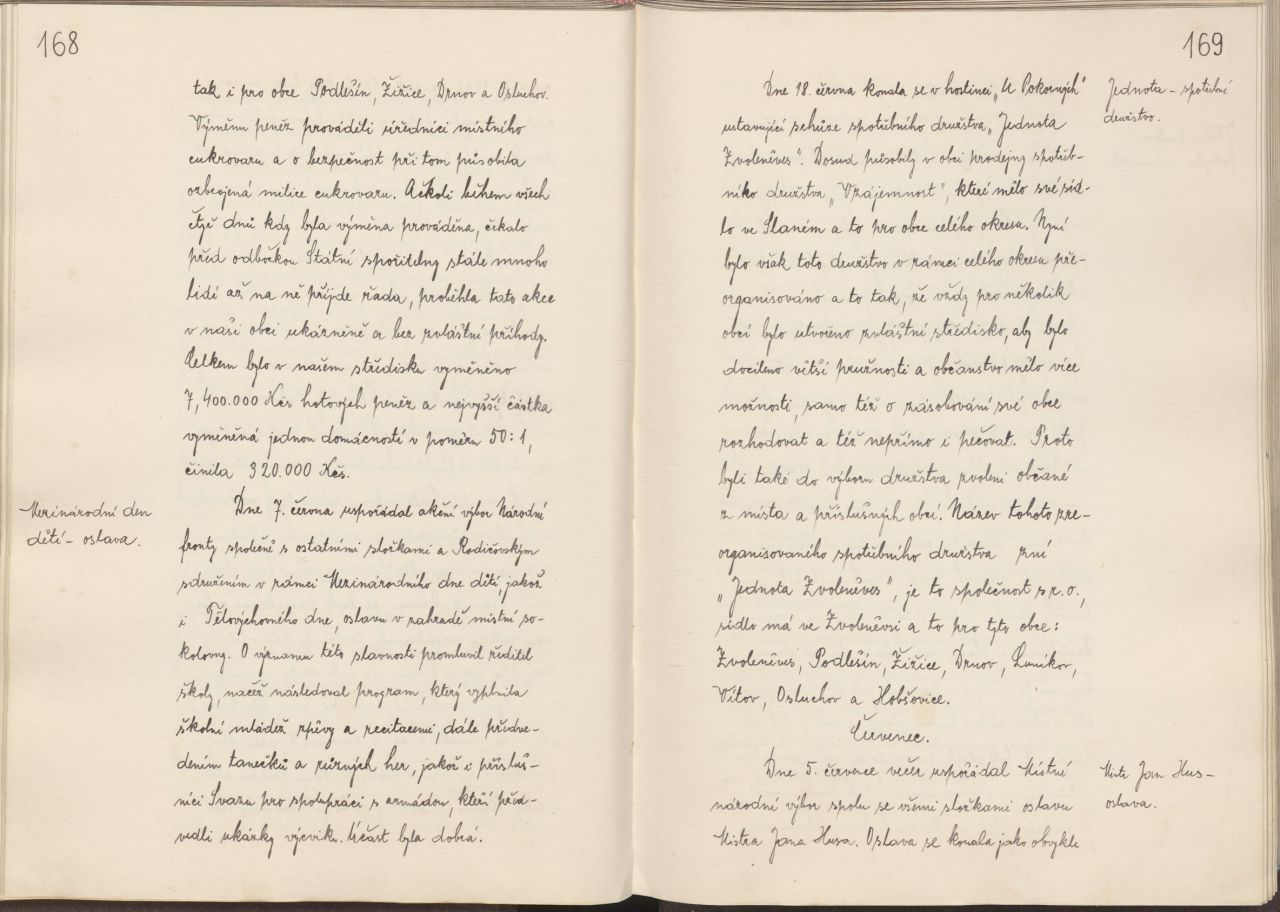 168
tak i pro obce Podlešín, Žižice, Drnov a Osluchov.
Výměnu peněz prováděli úředníci místního
cukrovaru a o bezpečnost při tom působila
ozbrojená milice cukrovaru. Ačkoli během všech
čtyř dnů kdy byla výměna prováděna, čekalo
před odbočkou Státní spořitelny stále mnoho
lidí až na ně přijde řada, proběhla tato akce
v naší obci ukázněně a bez zvláštní příhody.
Celkem bylo v našem středisku vyměněno
7,400.000 Kčs hotových peněz a nejvyšší částka
vyměněná jednou domácností v poměru 50:1,
činila 320.000 Kčs.
Mezinárodní den
dětí - oslava.
Dne 7. června uspořádal akční výbor Národní
fronty společně s ostatními složkami a Rodičovským
sdružením v rámci Mezinárodního dne dětí, jakož
i Tělovýchovného dne, oslavu v zahradě místní so-
kolovny. O významu této slavnosti promluvil ředitel
školy, načež následoval program, který vyplnila
školní mládež zpěvy a recitacemi, dále předve-
dením tanečků a různých her, jakož i přísluš-
níci Svazu pro spolupráci s armádou, kteří před-
vedli ukázky výcviku. Účast byla dobrá.
169
Dne 18. června konala se v hostinci „U Pokorných"
ustavující schůze spotřebního družstva „Jednota
Zvoleněves". Dosud působily v obci prodejny spotřeb-
ního družstva „Vzájemnost", které mělo své síd-
lo ve Slaném a to pro obce celého okresu. Nyní
bylo však toto družstvo v rámci celého okresu pře-
organisováno a to tak, že vždy pro několik
obcí bylo utvořeno zvláštní středisko, aby bylo
docíleno větší pružnosti a občanstvo mělo více
možnosti, samo též o zásobování své obce
rozhodovat a též nepřímo i pečovat. Proto
byli také do výboru družstva zvoleni občané
z místa a příslušných obcí. Název tohoto zre-
organisovaného spotřebního družstva zní
„Jednota Zvoleněves", je to společnost s r. o.,
sídlo má ve Zvoleněvsi a to pro tyto obce:
Zvoleněves, Podlešín, Žižice, Drnov, Luníkov,
Vítov, Osluchov a Hobšovice.
Jednota - spotřební
družstvo.
Červenec.
Dne 5. července večer uspořádal Místní
národní výbor spolu se všemi složkami oslavu
Mistra Jana Husa. Oslava se konala jako obvykle
Mistr Jan Hus -
oslava.